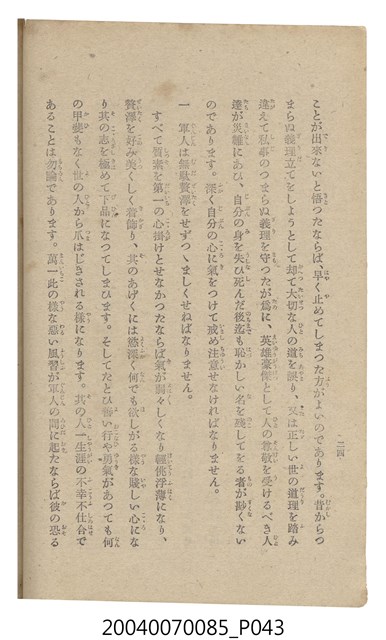 二四
ことが出來ないと悟つたならば早く止めてしまつた方がよいのであります。昔からつ
まらぬ義理立てをしようとして却て大切な人の道を誤り、又は正しい世の道理を踏み
違えて私事のつまらぬ義理を守つたが爲に、英雄豪傑として人の尊敬を受けるべき人
達が災難にあひ、自分の身を失ひ死んだ後迄も恥かしい名を殘してをる者が尠くない
のであります。深く自分の心に氣をつけて戒め注意せなければなりません。
一 軍人は無駄贅澤をせずつゝましくせねばなりません。
すべて質素を第一の心掛けとせなかつたならば氣が弱々しくなり輕桃浮薄になり、
贅澤を好み美くしく着飾り、其のあげくには慾深く何でも欲しがる樣な賤しい心にな
り其の志を極めて下品になつてしまひます。そしてたとひ善い行や勇氣があつても何
の甲斐もなく世の人から爪はじきされる樣になります。其の人一生涯の不幸不仕合で
あることは勿論であります。萬一此の樣な惡い風習が軍人の間に起たならば彼の恐る
20040070085_P043